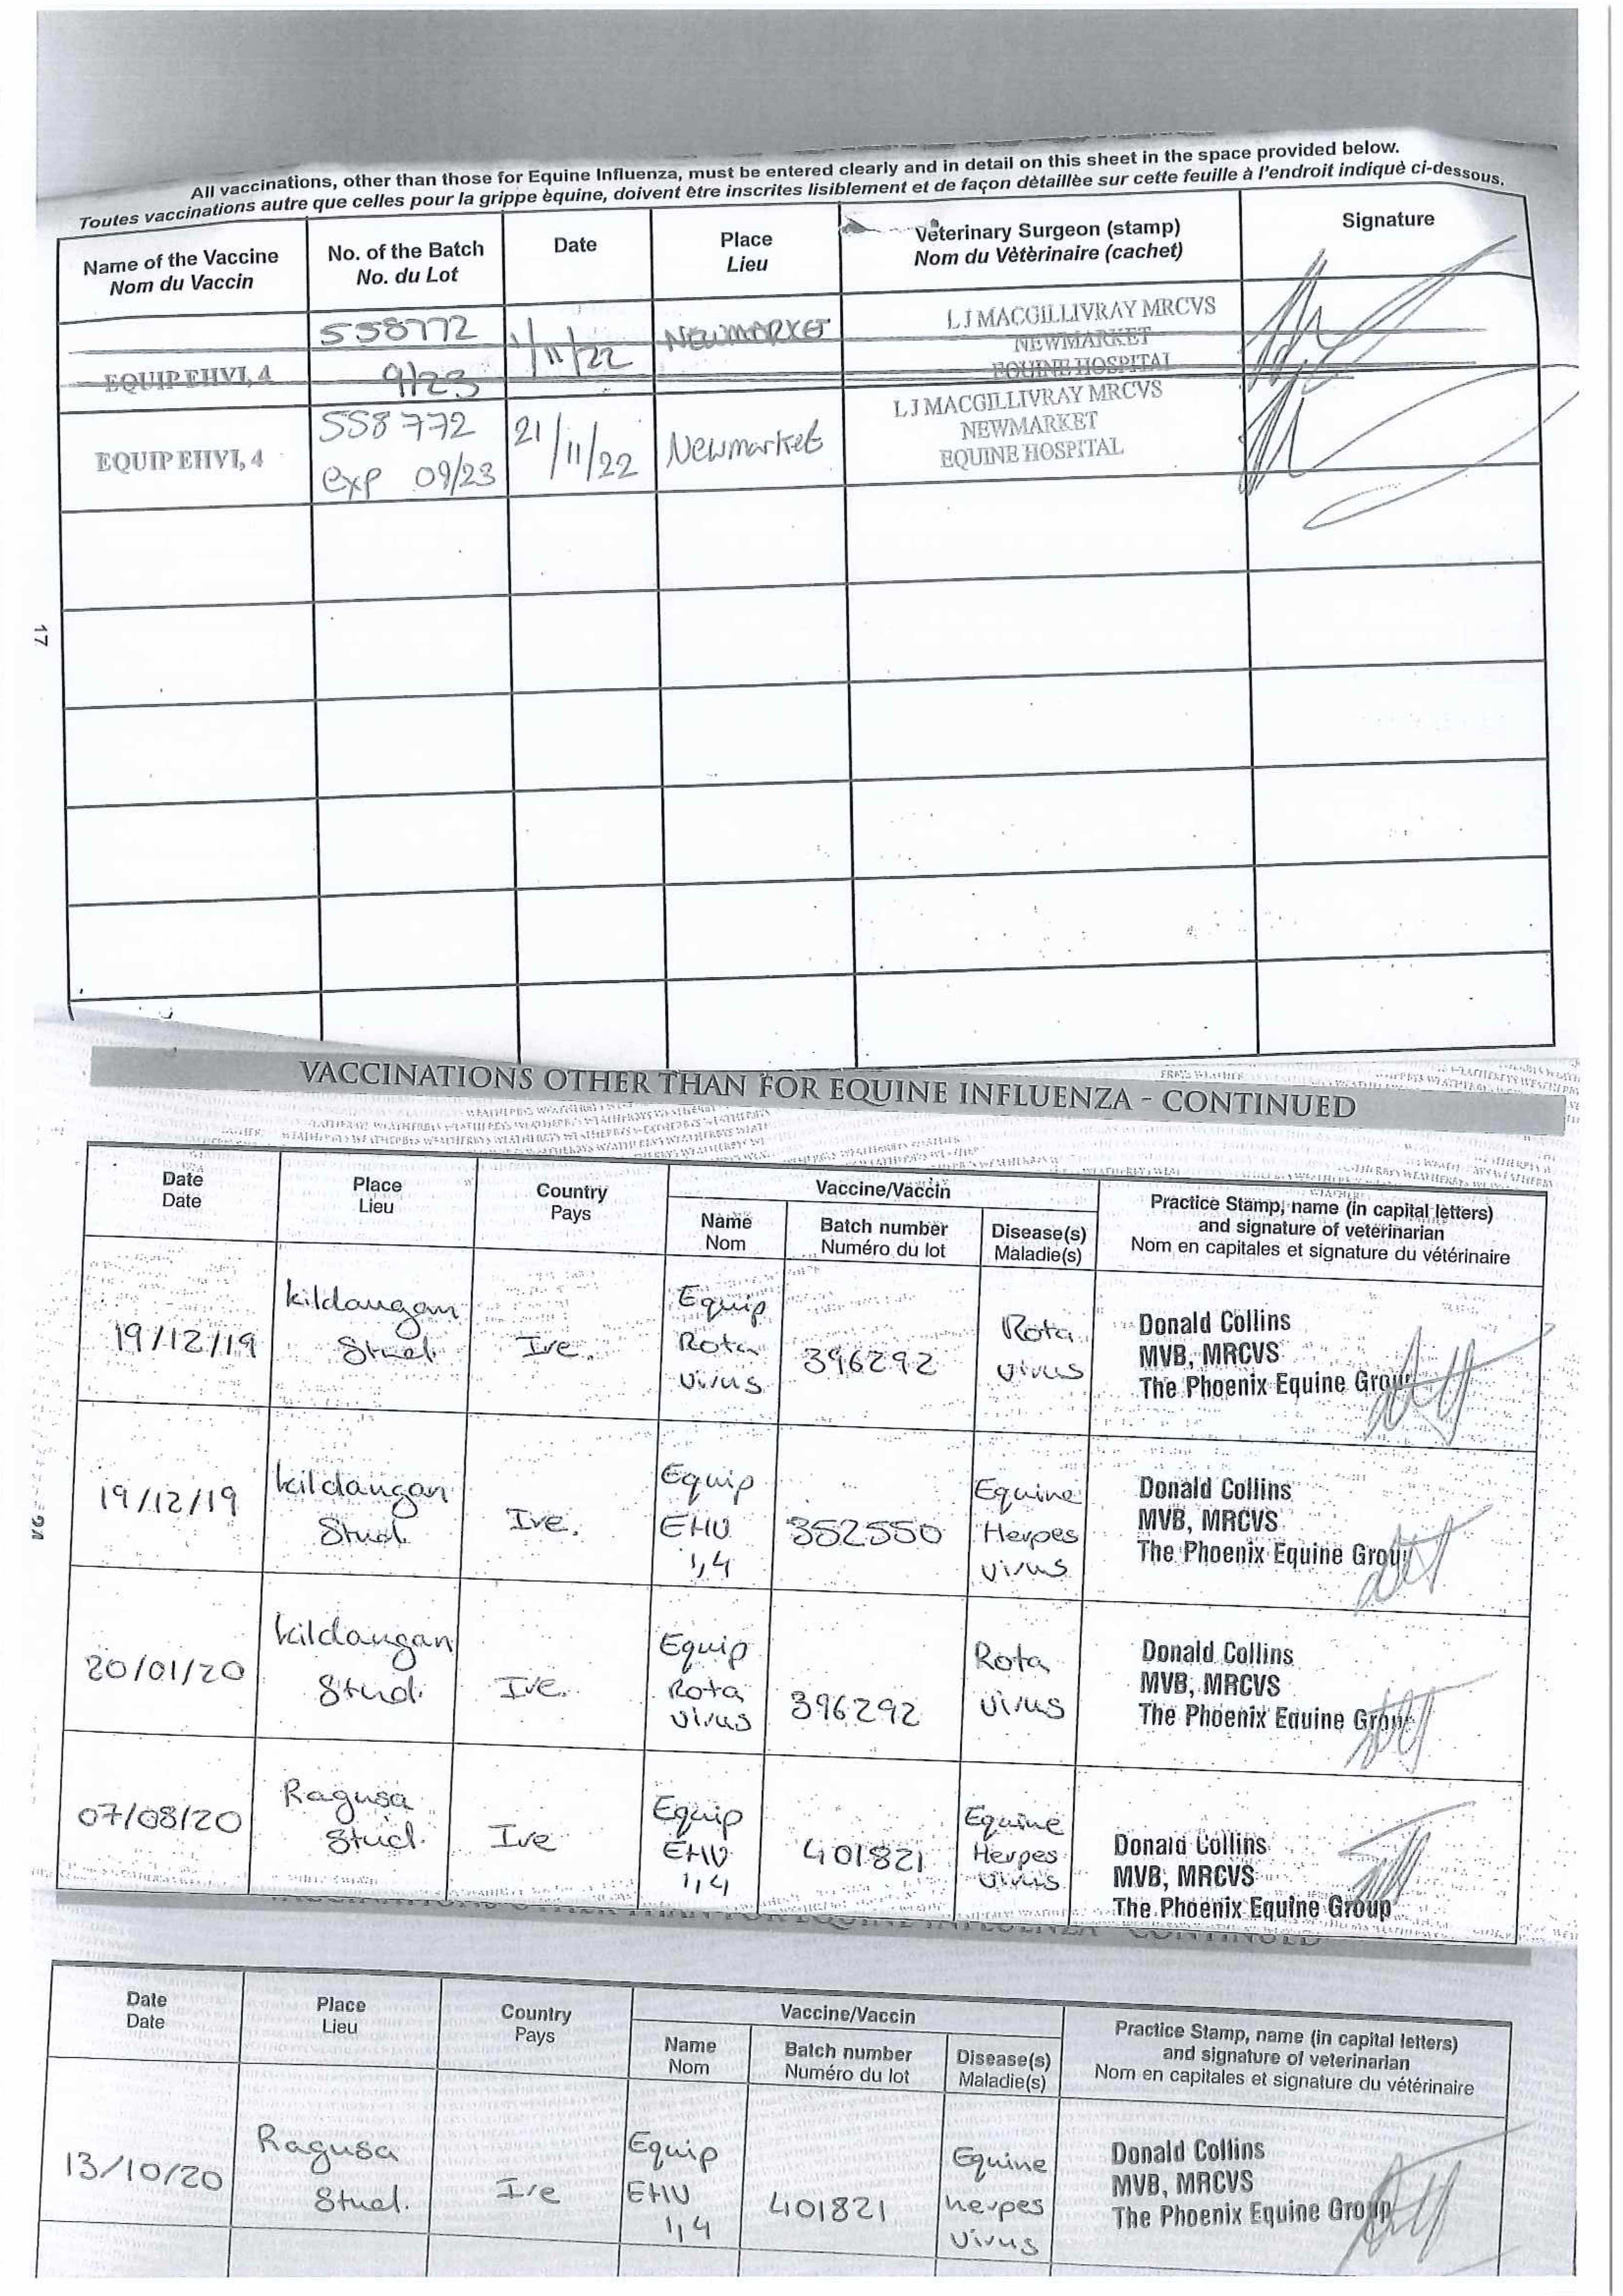 All vaccinations, other than those for Equine Influenza, must be entered clearly and in detail on this sheet in the space provided below.
Toutes vaccinations autre que celles pour la grippe èquine, doivent être inscrites lisiblement et de façon dètaillèe sur cette feuille à l'endroit indiquè ci-dessous.
Name of the Vaccine
Nom du Vaccin
No. of the Batch
No. du Lot
Date
Place
Lieu
Veterinary Surgeon (stamp)
Nom du Vètèrinaire (cachet)
Signature
EQUIP EHV1, 4
558772
9/23
1/11/22
NEWMARKET
L J MACGILLIVRAY MRCVS
NEWMARKET
EQUINE HOSPITAL
EQUIP EHV1, 4
558772
exp 09/23
21/11/22
Newmarket
L J MACGILLIVRAY MRCVS
NEWMARKET
EQUINE HOSPITAL
17
VACCINATIONS OTHER THAN FOR EQUINE INFLUENZA - CONTINUED
Date
Date
Place
Lieu
Country
Pays
Vaccine/Vaccin
Name
Nom
Batch number
Numéro du lot
Disease(s)
Maladie(s)
Practice Stamp, name (in capital letters)
and signature of veterinarian
Nom en capitales et signature du vétérinaire
19/12/19
Kildangan
Stud
Ire.
Equip
Rota
virus
396292
Rota
virus
Donald Collins
MVB, MRCVS
The Phoenix Equine Group
19/12/19
Kildangan
Stud
Ire.
Equip
EHV
1,4
352550
Equine
Herpes
virus
Donald Collins
MVB, MRCVS
The Phoenix Equine Group
20/01/20
Kildangan
Stud.
Ire.
Equip
Rota
virus
396292
Rota
virus
Donald Collins
MVB, MRCVS
The Phoenix Equine Group
07/08/20
Ragusa
Stud.
Ire
Equip
EHV
1,4
401821
Equine
Herpes
virus
Donald Collins
MVB, MRCVS
The Phoenix Equine Group
Date
Date
Place
Lieu
Country
Pays
Vaccine/Vaccin
Name
Nom
Batch number
Numéro du lot
Disease(s)
Maladie(s)
Practice Stamp, name (in capital letters)
and signature of veterinarian
Nom en capitales et signature du vétérinaire
13/10/20
Ragusa
Stud.
Ire
Equip
EHV
1,4
401821
Equine
herpes
virus
Donald Collins
MVB, MRCVS
The Phoenix Equine Group